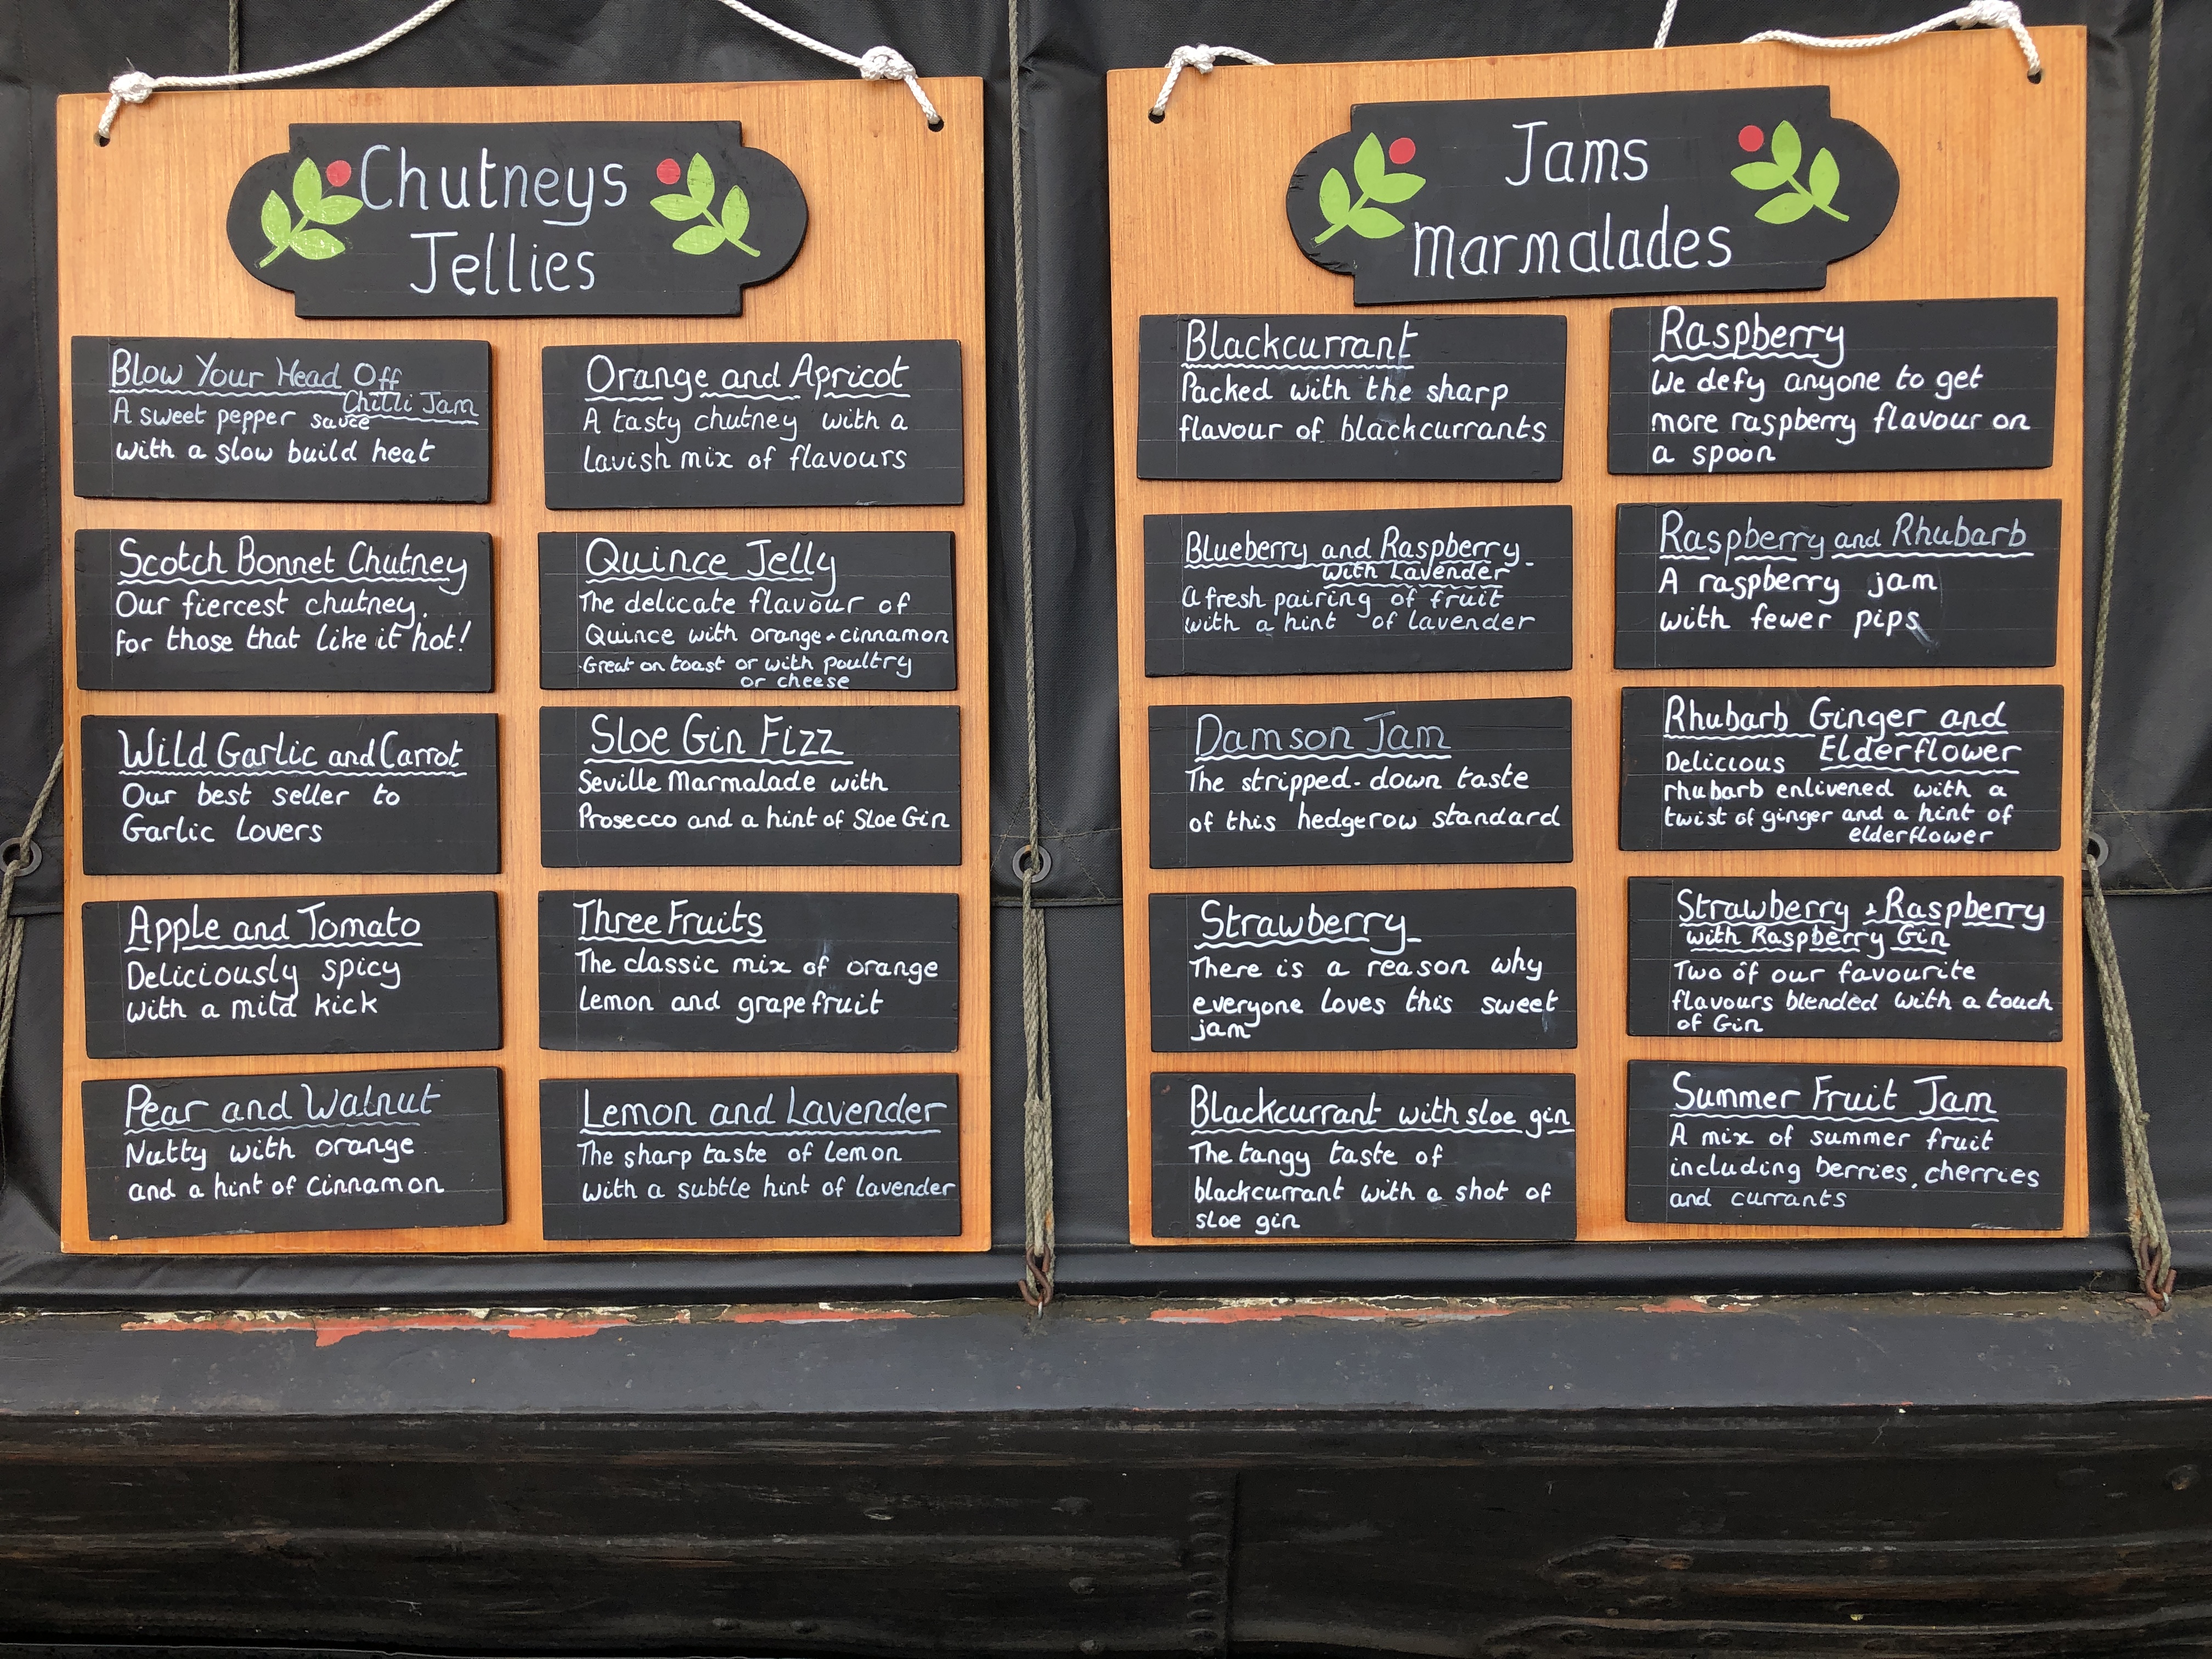 Chutneys
Jellies
Blow Your Head Off
Chilli Jam
A sweet pepper sauce
with a slow build heat
Scotch Bonnet Chutney
Our fiercest chutney.
for those that like it hot!
Wild Garlic and Carrot
Our best seller to
Garlic Lovers
Apple and Tomato
Deliciously spicy
with a mild kick
Pear and Walnut
Nutty with orange
and a hint of cinnamon
Orange and Apricot
A tasty chutney with a
lavish mix of flavours
Quince Jelly
The delicate flavour of
Quince with orange + cinnamon
Great on toast or with poultry
or cheese
Sloe Gin Fizz
Seville Marmalade with
Prosecco and a hint of Sloe Gin
Three Fruits
The classic mix of orange
Lemon and grapefruit
Lemon and Lavender
The sharp taste of lemon
with a subtle hint of lavender
Jams
Marmalades
Blackcurrant
Packed with the sharp
flavour of blackcurrants
Blueberry and Raspberry
with Lavender
A fresh pairing of fruit
with a hint of lavender
Damson Jam
The stripped-down taste
of this hedgerow standard
Strawberry
There is a reason why
everyone loves this sweet
jam
Blackcurrant with sloe gin
The tangy taste of
blackcurrant with a shot of
sloe gin
Raspberry
We defy anyone to get
more raspberry flavour on
a spoon
Raspberry and Rhubarb
A raspberry jam
with fewer pips
Rhubarb Ginger and
Elderflower
Delicious
rhubarb enlivened with a
twist of ginger and a hint of
elderflower
Strawberry + Raspberry
with Raspberry Gin
Two of our favourite
flavours blended with a touch
of Gin
Summer Fruit Jam
A mix of summer fruit
including berries, cherries
and currants